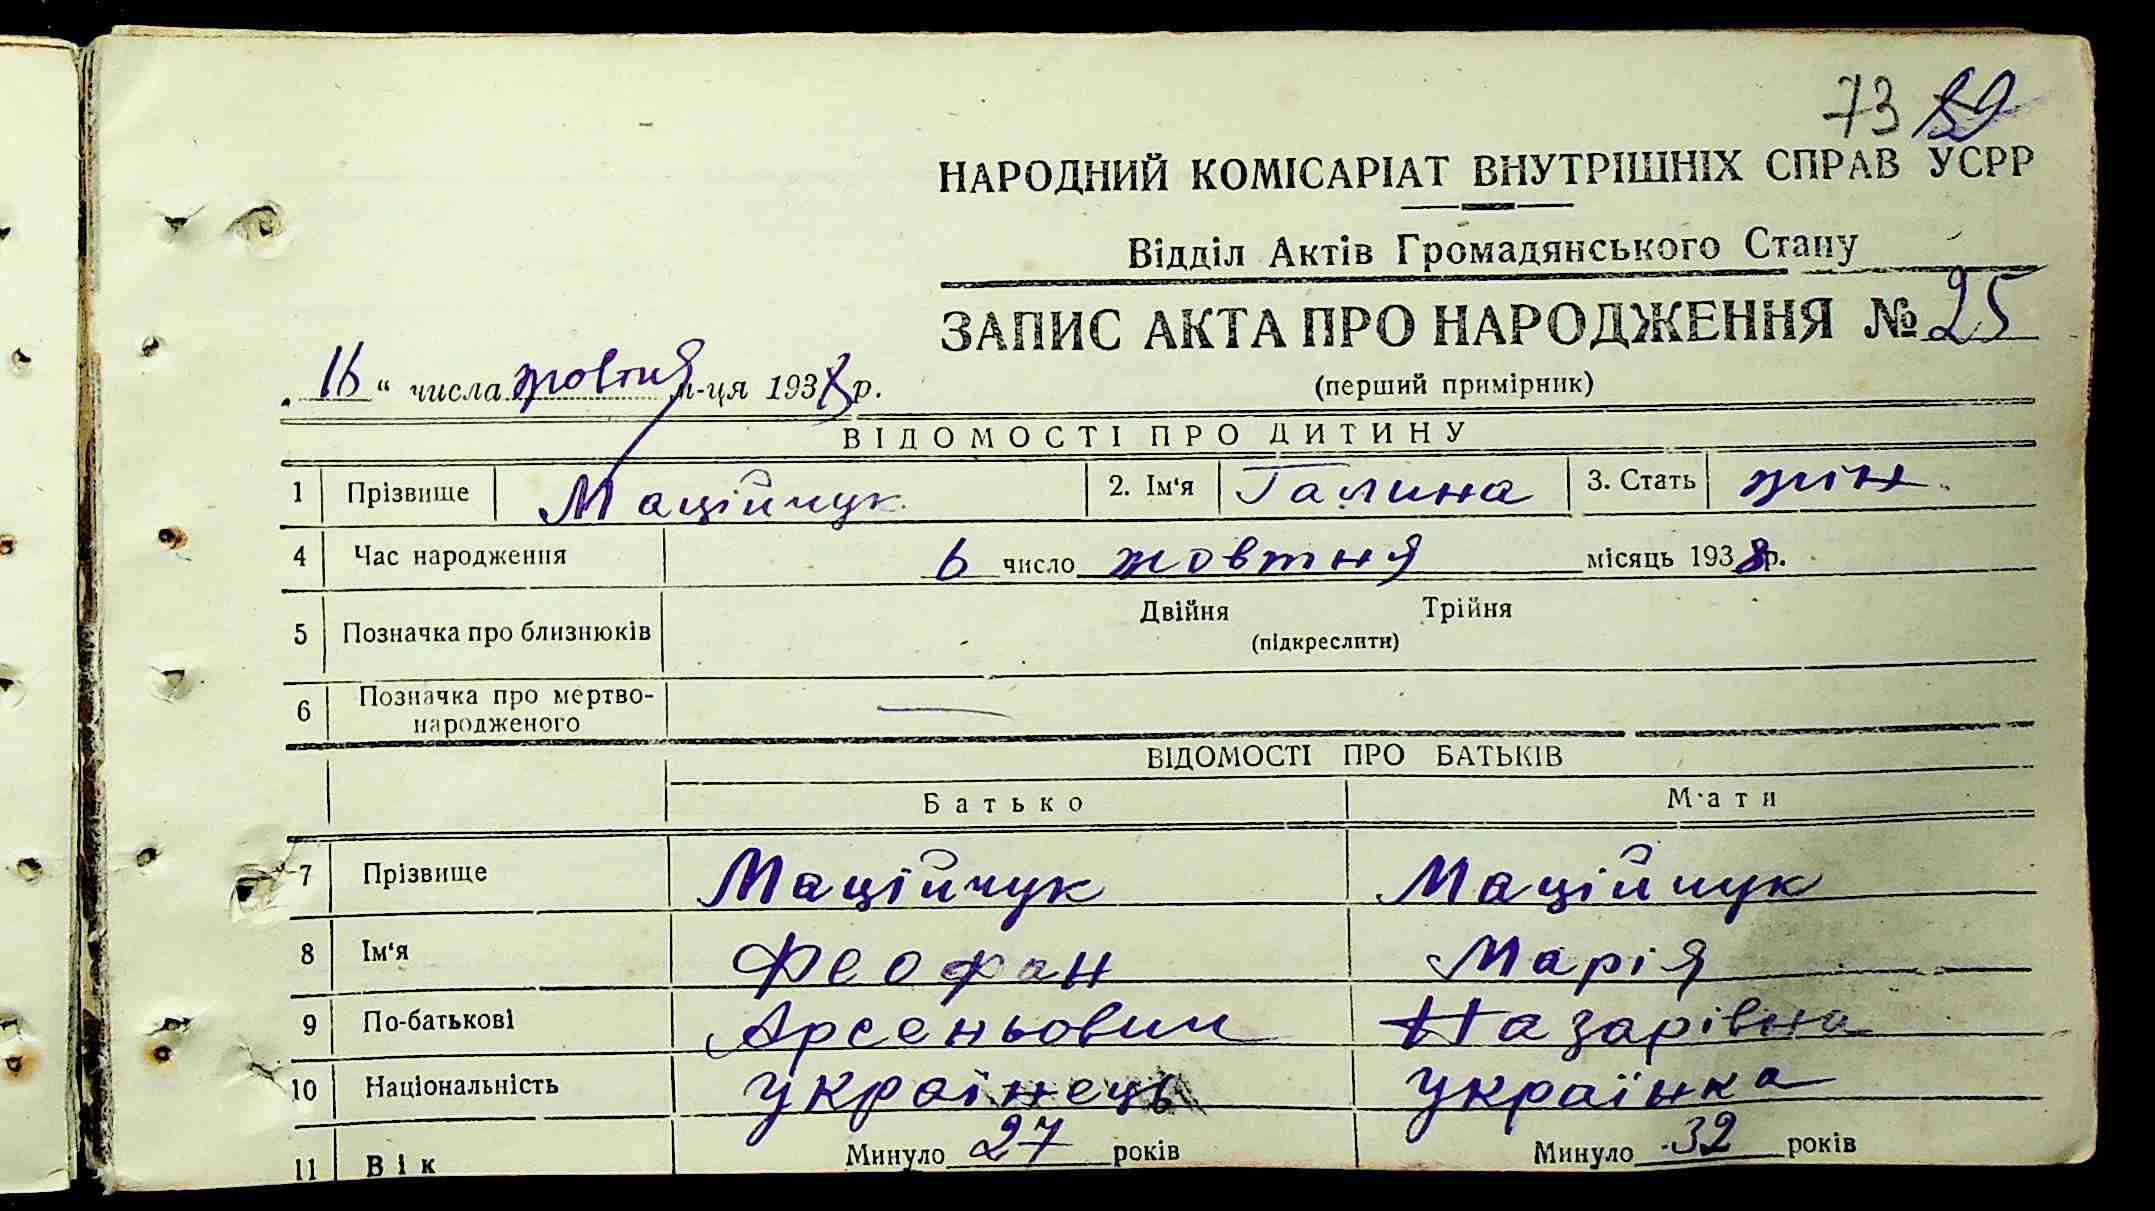 73 59
НАРОДНИЙ КОМІСАРІАТ ВНУТРІШНІХ СПРАВ УСРР
Відділ Актів Громадянського Стану
ЗАПИС АКТА ПРО НАРОДЖЕННЯ № 25
(перший примірник)
„16“ числа жовтня м-ця 1938 р.
ВІДОМОСТІ ПРО ДИТИНУ
1 Прізвище Маційчук 2. Ім'я Галина 3. Стать жін.
4 Час народження 6 число жовтня місяць 1938 р.
5 Позначка про близнюків Двійня Трійня
(підкреслити)
6 Позначка про мертво-
народженого —
ВІДОМОСТІ ПРО БАТЬКІВ
Батько Мати
7 Прізвище Маційчук Маційчук
8 Ім'я Феофан Марія
9 По-батькові Арсеньович Назарівна
10 Національність українець українка
11 Вік Минуло 27 років Минуло 32 років